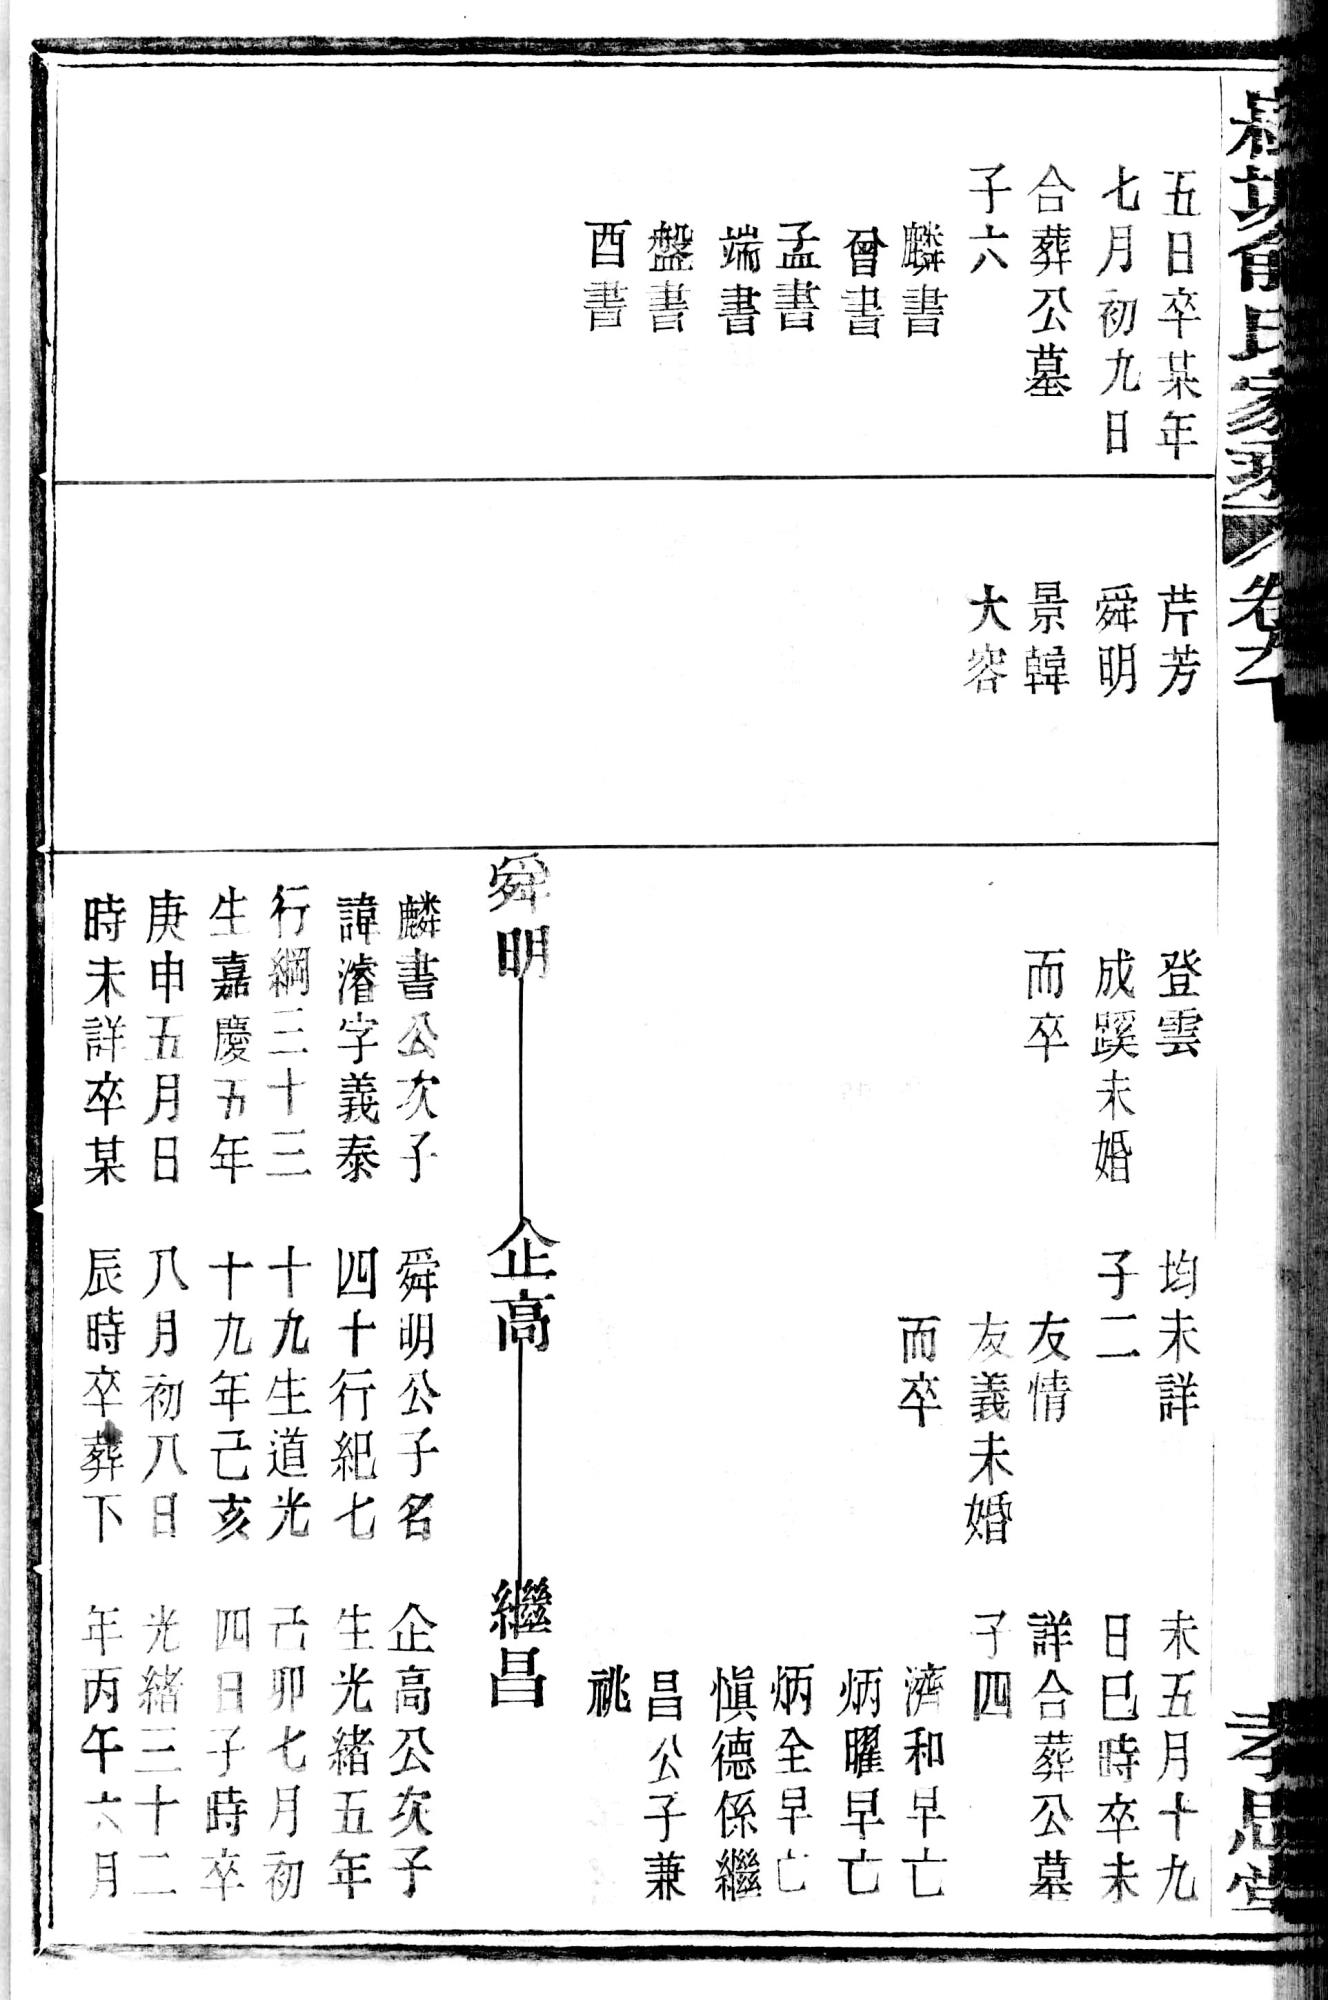 氏家
卷
孝思堂
五日卒某年
七月初九日
合葬公墓
子六
麟書
曾書
孟書
端書
盤書
酉書
芹芳
舜明
景韓
大容
登雲
成蹊未婚
而卒
均未詳
子二
友情
友義未婚
而卒
未五月十九
日巳時卒未
詳合葬公墓
子四
濟和早亡
炳曜早亡
炳全早亡
愼德係繼
昌公子兼
祧
舜明
企高
繼昌
麟書公次子
諱濬字義泰
行綱三十三
生嘉慶五年
庚申五月日
時未詳卒某
舜明公子名
四十行紀七
十九生道光
十九年己亥
八月初八日
辰時卒葬下
企高公次子
生光緒五年
己卯七月初
四日子時卒
光緒三十二
年丙午六月